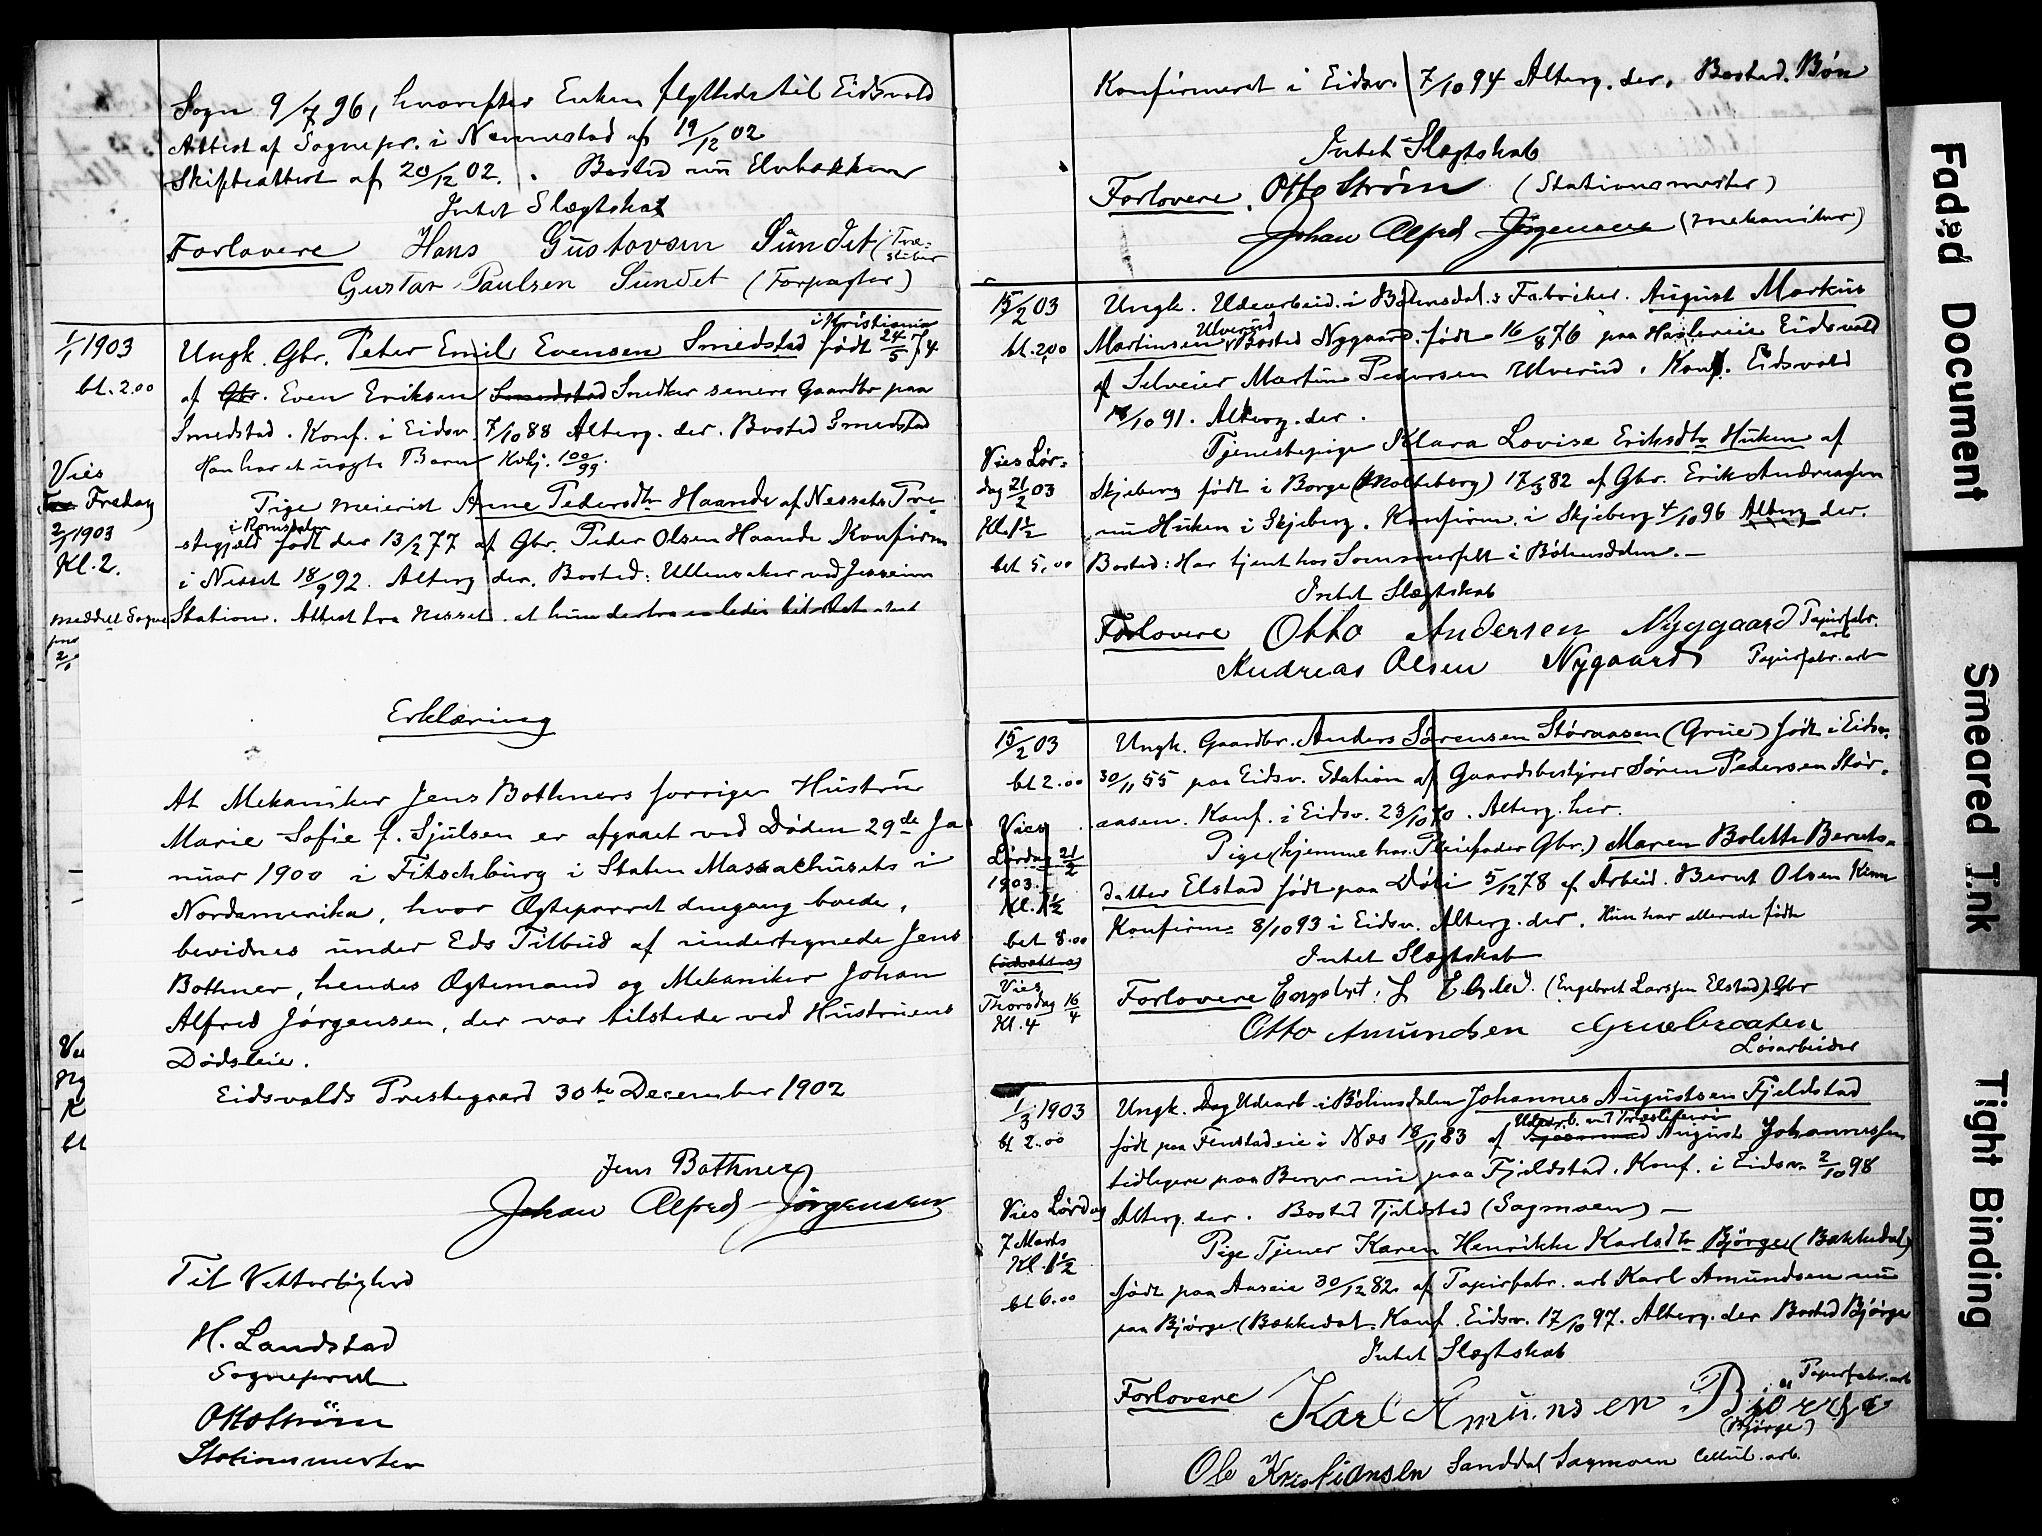 Sogn 9/7 96, hvorefter Enken flyttede til Eidsvold
Attest af Sognepr. i Nannestad af 19/12 02
Skifteattest af 20/12 02. Bosted nu Elvebakken
Intet Slægtskab
Forlovere Hans Gustavsen Sundet
Gustav Paulsen Sundet (Forpagter)
1/1 1903
bt. 2.00
Ungk. Gbr. Peter Emil Evensen Smedstad født 24/5 74
i Kristiania
af Gbr. Even Eriksen Smedstad Snedker senere Gaardbr paa
Smedstad. Konf. i Eidsv. 7/10 88 Alterg. der. Bosted Smedstad
Han har et uægte Barn Kvhj. 100/99.
Vies
Fredag
2/1 1903
Kl. 2.
Pige Meierist Anne Pedersdtr Haande af Nessets Præ-
i Romsdalen
stegjæld født der 13/2 77 af Gbr. Peder Olsen Haande Konfirm
i Nesset 18/9 92. Alterg der. Bosted: Ullensaker ved Jessheim
meddelt Sogne
Station. Attest fra Nesset at hun derfra er ledig til
Erklæring
At Mekaniker Jens Bothners forrige Hustru
Marie Sofie f. Sjulsen er afgaaet ved Døden 29de Ja
nuar 1900 i Fitschburg i Staten Massachusets i
Nordamerika, hvor Ægteparret dengang boede,
bevidnes under Eds Tilbud af undertegnede Jens
Bothner, hendes Ægtemand og Mekaniker Johan
Alfred Jørgensen, der var tilstede ved Hustruens
Dødsleie.
Eidsvolds Prestegaard 30te December 1902
Jens Bothner
Johan Alfred Jørgensen
Til Vitterlighed
H. Landstad
Sogneprest
Otto Strøm
Stationsmester
Konfirmeret i Eidsv. 7/10 94 Alterg. der. Bosted. Bøn
Intet Slægtskab
Forlovere. Otto Strøm (Stationsmester)
Johan Alfred Jørgensen (Mekaniker)
15/2 03
bt. 2,00
Ungk. Udearbeid. i Bøhnsdal.s Fabriker. August Markus
Ulverud
Martinsen Bosted Nygaard. født 16/8 76 paa Hasleveie Eidsvold
af Selveier Martin Pedersen Ulverud. Konf. Eidsvold
18/10 91. Alterg. der.
Vies Lør-
dag 21/2 03
Kl. 1 1/2
bet 5,00
Tjenestepige Klara Lovise Eriksdtr Huken af
Skjeberg født i Borge (Molteberg) 17/3 82 af Gbr. Erik Andreassen
nu Huken i Skjeberg. Konfirm. i Skjeberg 4/10 96 Alterg der.
Bosted: Har tjent hos Sommerfelt i Bøhnsdalen. —
Intet Slægtskab
Forlovere Otto Andersen Nyggaard Papirfabr. arb
Andreas Olsen Nygaard Papirfabr. arb
15/2 03
bt 2.00
Ungk. Gaardbr. Anders Sørensen Støraasen (Grue) født i Eidsv.
30/11 55 paa Eidsv. Station af Gaardsbestyrer Søren Pedersen Stør-
aasen. Konf. i Eidsv. 23/10 70. Alterg. her.
Vies
Lørdag 21/2
1903.
Kl. 1 1/2
bet 8.00
(udsættes)
Vies
Thorsdag 16/4
Kl. 4
Pige (hjemme hos Pleiefader Gbr.) Maren Bolette Bernts-
datter Elstad født paa Døli 5/12 78 af Arbeid. Bernt Olsen
Konfirm. 8/10 93 i Eidsv. Alterg. der. Hun har allerede født
Intet Slægtskab
Forlovere Engebret L Elsted. (Engebret Larssen Elstad) Gbr
Otto Amundsen
Løsarbeider
1/3 1903
bt 2.00
Ungk. Dag Udearb. i Bøhnsdalen Johannes Augustsen Fjeldstad
Udearb. ved Træsliberi
født paa Fenstadeie i Næs 18/11 83 af August Johannessen
tidligere paa Berger nu paa Fjeldstad. Konf. i Eidsv. 2/10 98
Vies Lørdag
7 Marts
Kl. 1 1/2
bt 6.00
Alterg. der. Bosted Fjeldstad (Sagmoen) —
Pige Tjener Karen Henrikke Karlsdtr Bjørge (Bakkedal)
født paa Aaseie 30/12 82 af Papirfabr. arb Karl Amundsen nu
paa Bjørge (Bakkedal. Konf. Eidsv. 17/10 97. Alterg. der Bosted Bjørge
Intet Slægtskab
Forlovere Karl Amundsen Bjørge Papirfabr. arb
(Bjørge)
Ole Kristiansen Sanddal Sagmoen Cellul. arb.
Faded Document
Smeared Ink
Tight Binding